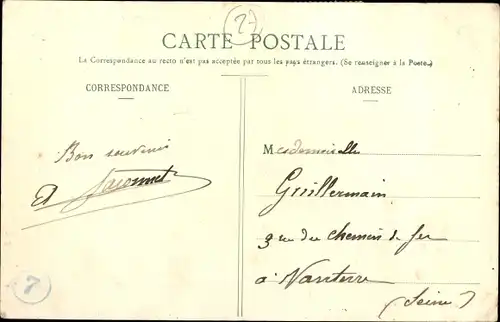 27
CARTE POSTALE
La Correspondance au recto n'est pas acceptée par tous les pays étrangers. (Se renseigner à la Poste.)
CORRESPONDANCE
ADRESSE
Bon souvenir
Mademoiselle
Guillermain
3 rue du chemin de fer
à Nanterre
(Seine)
7